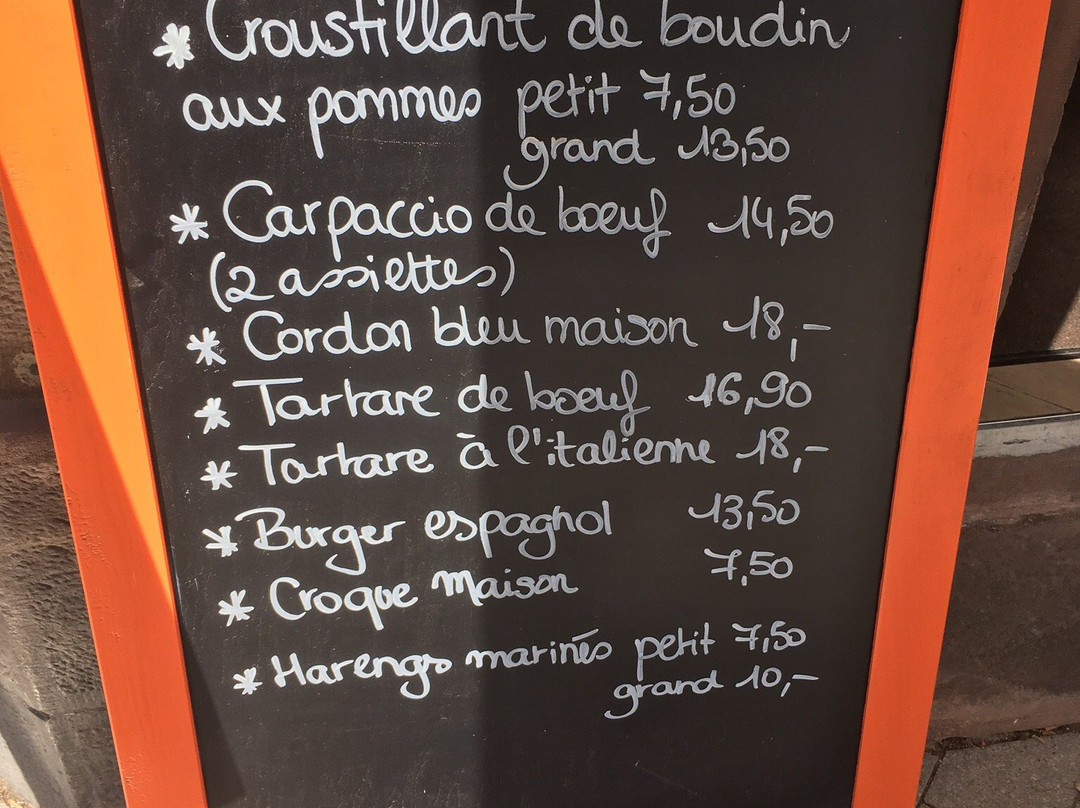 * Croustillant de boudin
aux pommes petit 7,50
grand 13,50
* Carpaccio de boeuf 14,50
(2 assiettes)
* Cordon bleu maison 18,-
* Tartare de boeuf 16,90
* Tartare à l'italienne 18,-
* Burger espagnol 13,50
* Croque Maison 7,50
* Harengs marinés petit 7,50
grand 10,-